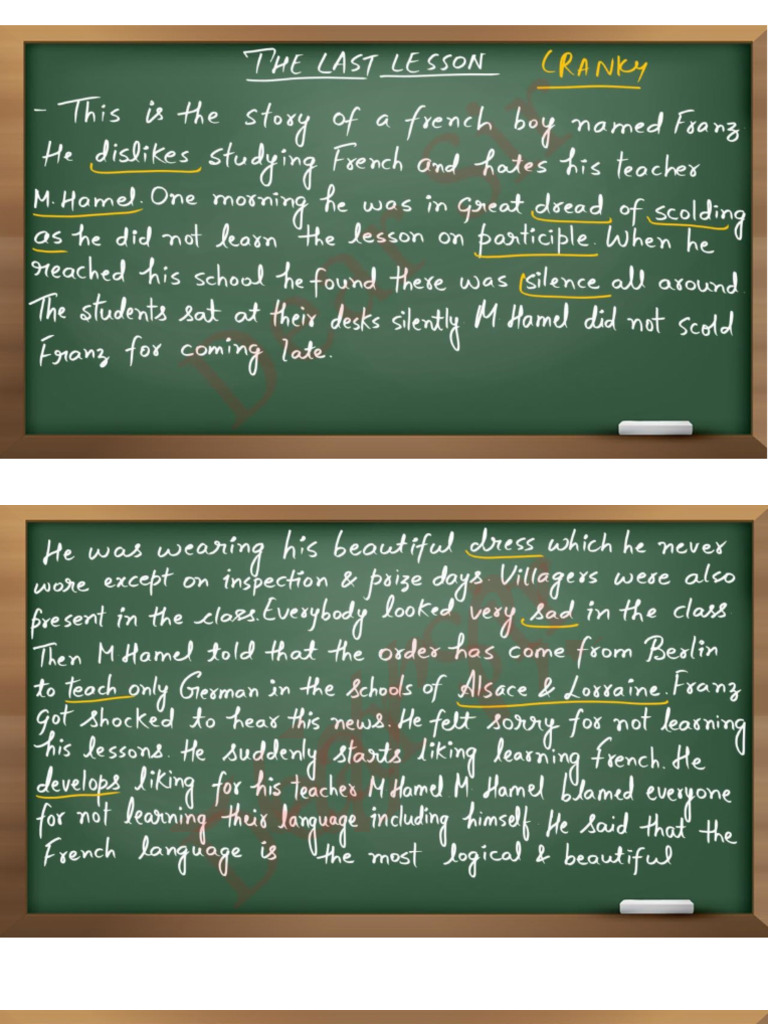 THE LAST LESSON CRANKY
- This is the story of a french boy named Franz.
He dislikes studying French and hates his teacher
M. Hamel. One morning he was in great dread of scolding
as he did not learn the lesson on participle. When he
reached his school he found there was silence all around.
The students sat at their desks silently M Hamel did not scold
Franz for coming late.
Dear Sir
He was wearing his beautiful dress which he never
wore except on inspection & prize days. Villagers were also
present in the class. Everybody looked very sad in the class
Then M Hamel told that the order has come from Berlin
to teach only German in the schools of Alsace & Lorraine. Franz
got shocked to hear this news. He felt sorry for not learning
his lessons. He suddenly starts liking learning french. He
develops liking for his teacher M Hamel M Hamel blamed everyone
for not learning their language including himself. He said that the
French language is the most logical & beautiful